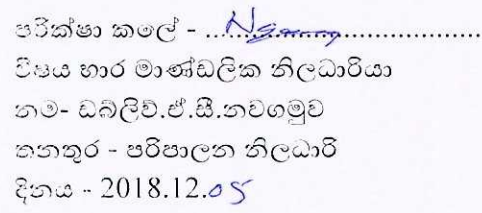 පරීක්ෂා කලේ - ....................................
විෂය භාර මාණ්ඩලික නිලධාරියා
නම- ඩබ්ලිව්.ඒ.සී.නවගමුව
තනතුර - පරිපාලන නිලධාරි
දිනය - 2018.12.05